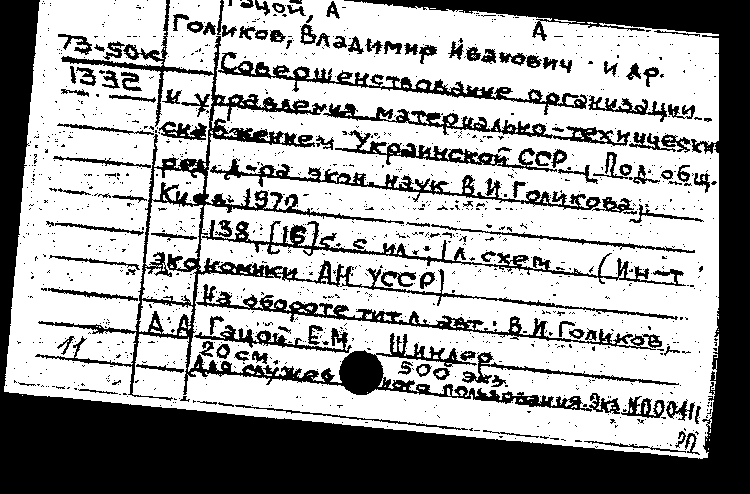 Гацой, А
А
Голиков, Владимир Иванович и др.
73-50к
1332
Совершенствование организации
и управления материально-технически
снабжением Украинской ССР. [Под общ.
ред. д-ра экон. наук В.И.Голикова].
Киев, 1970
138, [16] с. с ил.; 1 л. схем. (Ин-т
экономики АН УССР).
На обороте тит.л. авт.: В.И.Голиков,
А.А. Гацой, Е.М. Шиндер
20 см. 500 экз.
Для служеб пользования. Экз. №00041
11